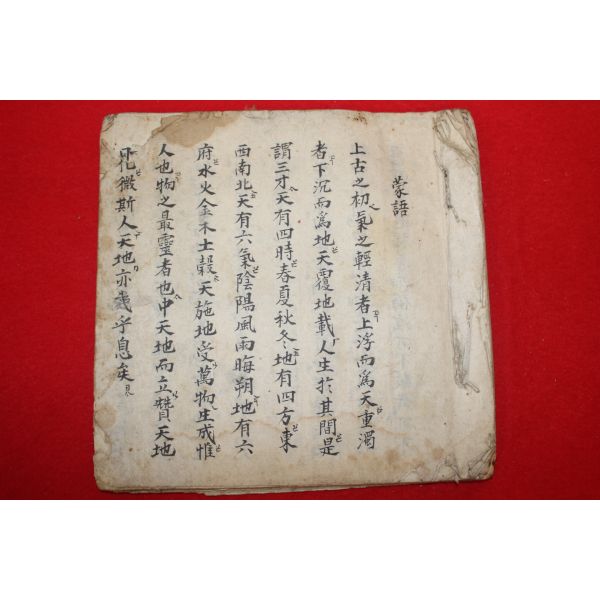 蒙語
上古之初氣之輕清者上浮而爲天重濁
者下沉而爲地天覆地載人生於其間是
謂三才天有四時春夏秋冬地有四方東
西南北天有六氣陰陽風雨晦朔地有六
府水火金木土穀天施地受萬物生成惟
人也物之最靈者也中天地而立贊天地
化微斯人天地亦幾乎息矣